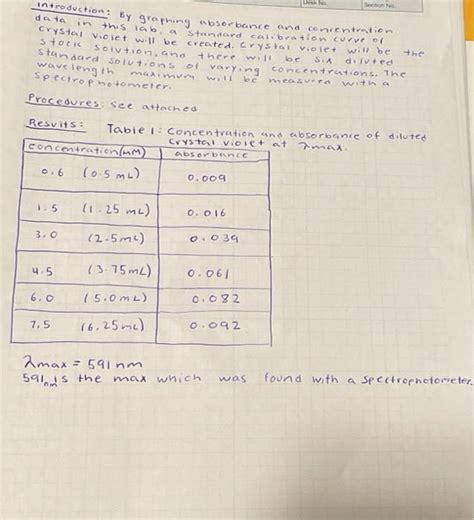 Desk No.
Section No.
Introduction: By graphing absorbance and concentration
data in this lab, a standard calibration curve of
crystal violet will be created. Crystal violet will be the
stock solution, and there will be six diluted
standard solutions of varying concentrations. The
wavelength maximum will be measured with a
spectrophotometer.
Procedures: See attached
Results: Table 1: Concentration and absorbance of diluted
crystal violet at λmax.
concentration (μM) absorbance
0.6 (0.5 mL) 0.009
1.5 (1.25 mL) 0.016
3.0 (2.5mL) 0.039
4.5 (3.75mL) 0.061
6.0 (5.0mL) 0.082
7.5 (6.25mL) 0.092
λmax = 591 nm
591 nm is the max which was found with a spectrophotometer.